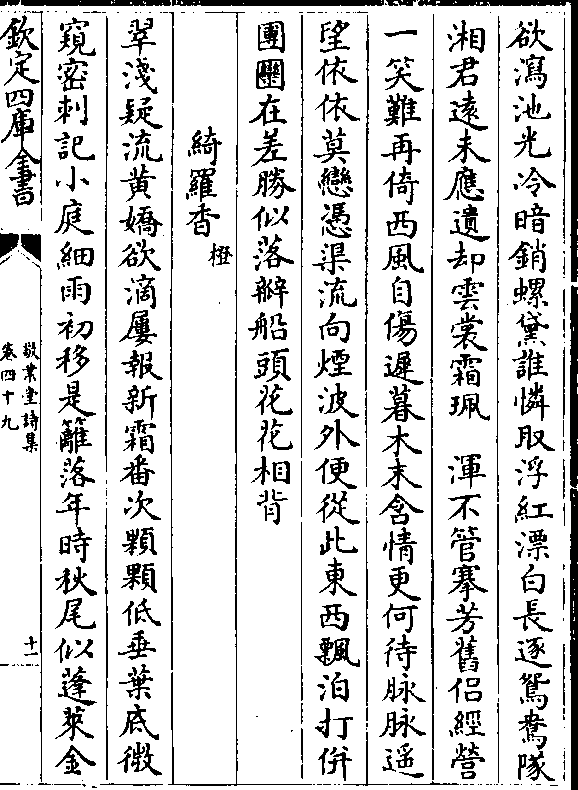 欲瀉池光冷暗銷螺黛誰憐取浮紅漂白長逐鴛鴦隊
湘君遠未應遺却雲裳霜珮　渾不管搴芳舊侣經營
一笑難再倚西風自傷遲暮木末含情更何待脉脉遥
望依依莫戀憑渠流向煙波外便從此東西飄泊打併
團圞在差勝似落瓣船頭花花相背
綺羅香橙
翠淺疑流黄嬌欲滴屢報新霜番次顆顆低垂葉底微
窺密刺記小庭細雨初移是籬落年時秋尾似蓬萊金
欽定四庫全書
敬業堂詩集
卷四十九
十一